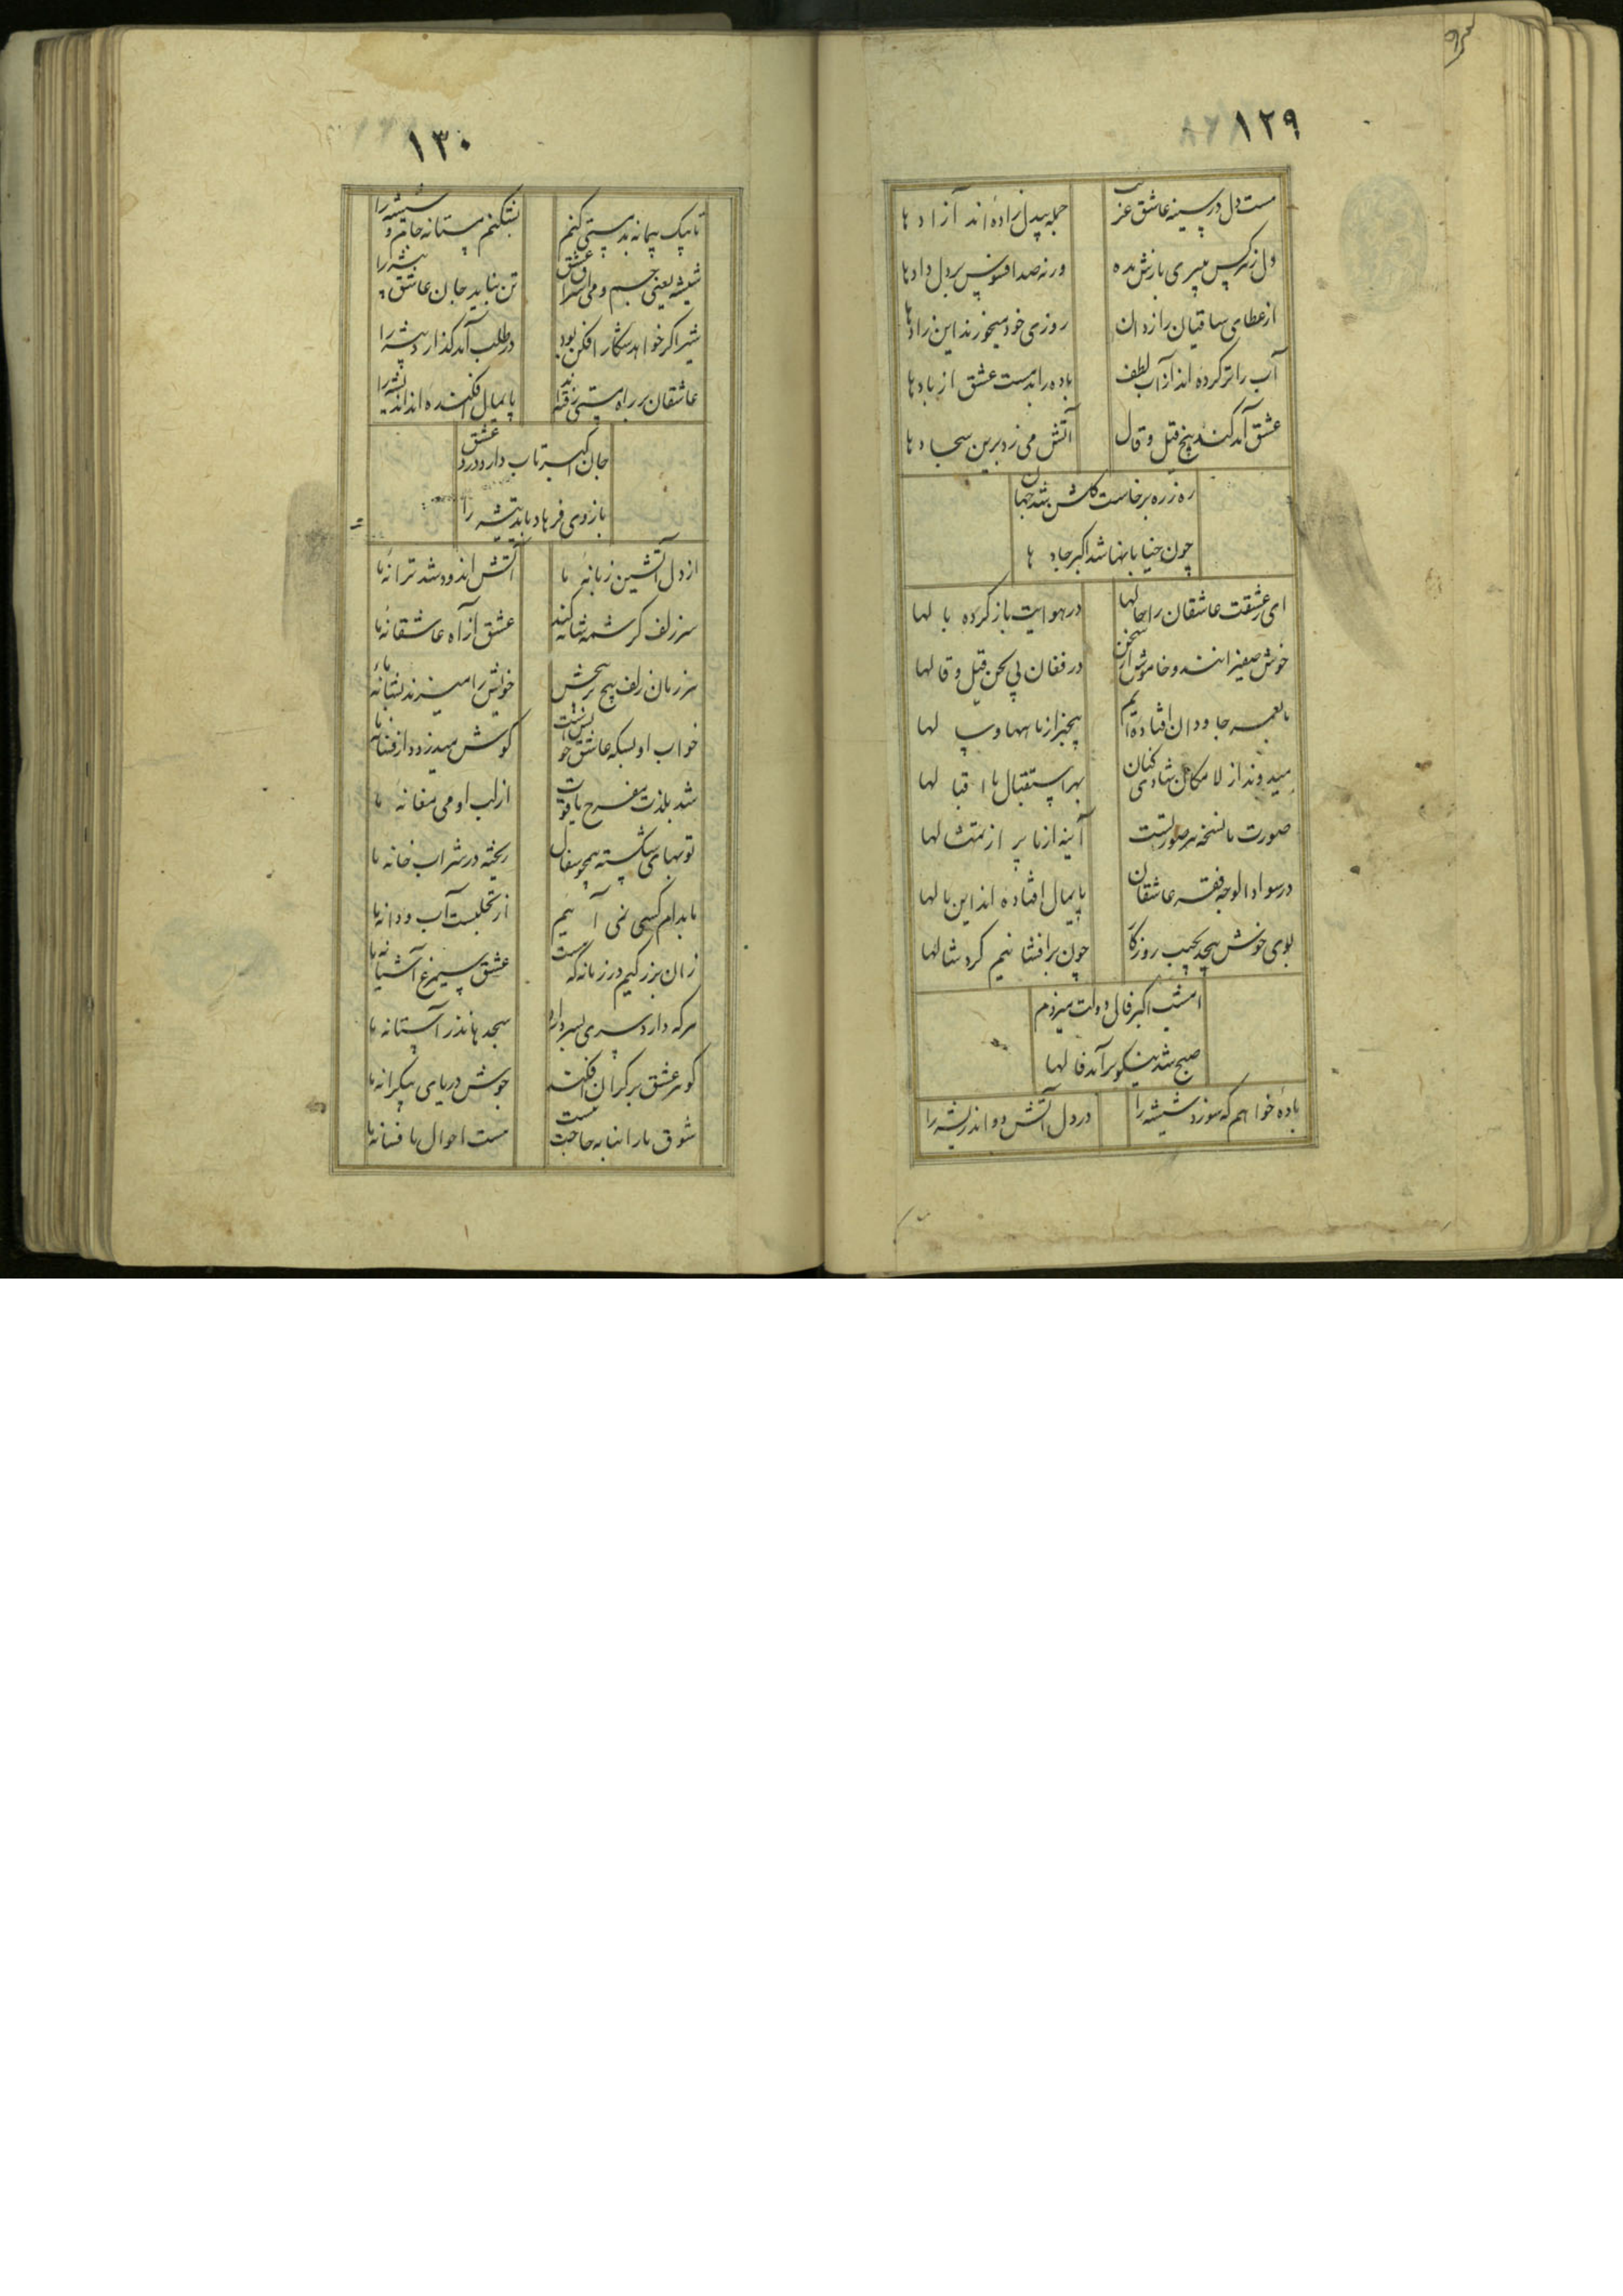 ١٢٩
مست دل در سینه عاشق عز
جمله بیدل زاده اند آزادها
دل ز هر کس میبری بازش مده
ورنه صد افسوس بر دل دادها
از عطای ساقیان راز دان
روزی خود میخورند این زادها
آب را تر کرده اند از آب لطف
باده را بد مست عشق از بادها
عشق آمد کند بیخ قیل و قال
آتش می زد برین سجادها
ره ز ره برخاست گلشن شد جهان
چون خیابانها شد اکبر جادها
ای ز عشقت عاشقان را حالها
در هوایت باز کرده بالها
خوش صفیرانند و خاموش از سخن
در فغان بی لحن قیل و قالها
ما بعمر جاودان افتاده ایم
بیخبر از ماهها و سالها
میدوند از لامکان شادی کنان
بهر استقبال ما اقبالها
صورت ما نسخه هر صورتست
آینه از ما پر از تمثالها
در سواد الوجه فقر عاشقان
پایمال افتاده اند این مالها
بوی خوش پیچد بجیب روزگار
چون برافشانیم گرد شالها
امشب اکبر فال دولت میزدم
صبح شد نیکو برآمد فالها
باده خواهم که سوزد شیشه را
در دل آتش دواند ریشه را
١٣٠
تا بیک پیمانه بد مستی کنم
بشکنم مستانه جام و شیشه را
شیشه یعنی جسم و می اسرار عشق
تن نباید جان عاشق پیشه را
شیر اگر خواهد شکار افکن بود
در طلب آمد گذارد بیشه را
عاشقان بر راه مستی رفته اند
پایمال افکنده اند اندیشه را
جان اکبر تاب دارد درد عشق
بازوی فرهاد باید تیشه را
از دل آتشین زبانه ما
آتش اندود شد ترانه ما
سر زلف کرشمه شانه کند
عشق از آه عاشقانه ما
هر زمان زلف پیچ پیچش
خویش را میزند بشانه ما
خواب او بسکه عاشق خو
گوش میدزدد از فسانه ما
شد بلذت مفرح یاقوت
از لب او می مغانه ما
توبهای شکسته همچو سفال
ریخته در شراب خانه ما
ما بدام کسی نمی آئیم
از تجلیست آب و دانه ما
زان بزرگیم در زمانه که هست
عشق سیمرغ آشیانه ما
هر که دارد سری بسر دارد
سجدها نذر آستانه ما
گوهر عشق بر کران افکند
جوش دریای بیکرانه ما
شوق ما را بنا به حاجت نیست
مست احوال ما فسانه ما